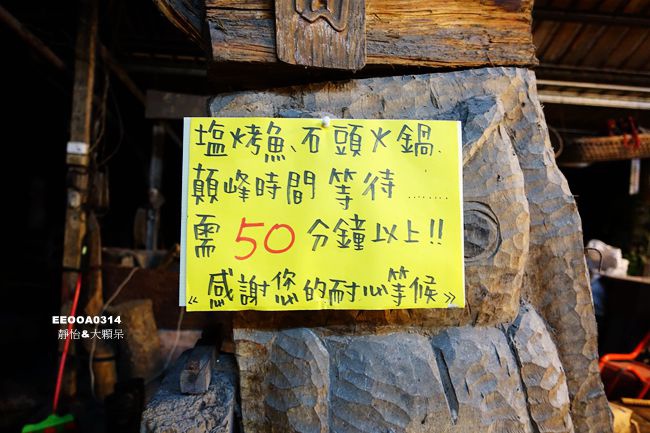 塩烤魚、石頭火鍋.
顛峰時間等待........
需50分鐘以上!!
《感謝您的耐心等候》
EEOOA0314
靜怡&大顆呆